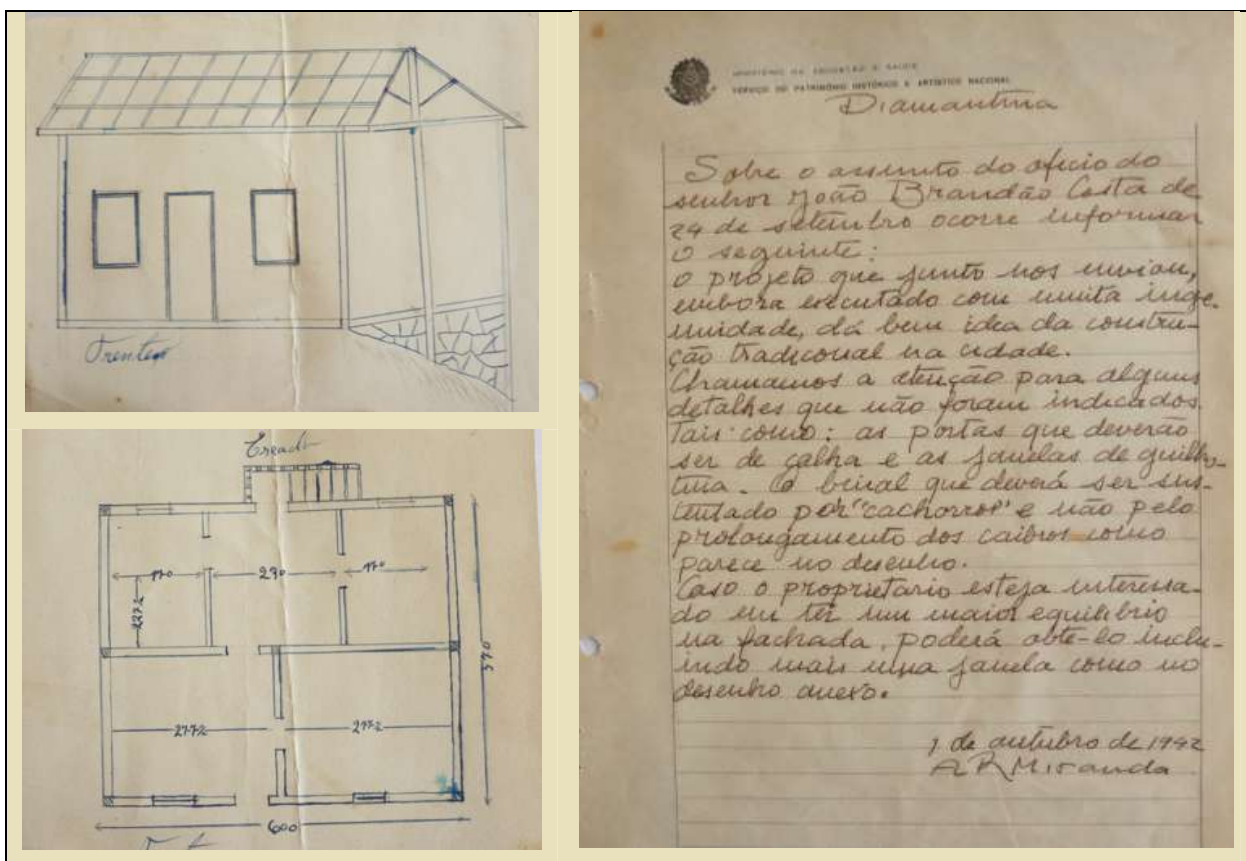 Frentes
170
290
170
2272
570
2772
2772
600
MINISTÉRIO DA EDUCAÇÃO E SAÚDE
SERVIÇO DO PATRIMÔNIO HISTÓRICO E ARTÍSTICO NACIONAL
Diamantina
Sobre o assunto do oficio do
senhor João Brandão Costa de
24 de setembro ocorre informar
o seguinte:
o projeto que junto nos enviou,
embora executado com muita inge-
nuidade, dá bem idea da constru-
ção tradicional na cidade.
Chamamos a atenção para alguns
detalhes que não foram indicados
tais como: as portas que deverão
ser de calha e as janelas de guilho-
tina. O beiral que deverá ser sus-
tentado por "cachorros" e não pelo
prolongamento dos caibros como
parece no desenho.
Caso o proprietario esteja interessa-
do em ter um maior equilibrio
na fachada, poderá obte-lo inclu-
indo mais uma janela como no
desenho anexo.
1 de outubro de 1942
A R Miranda